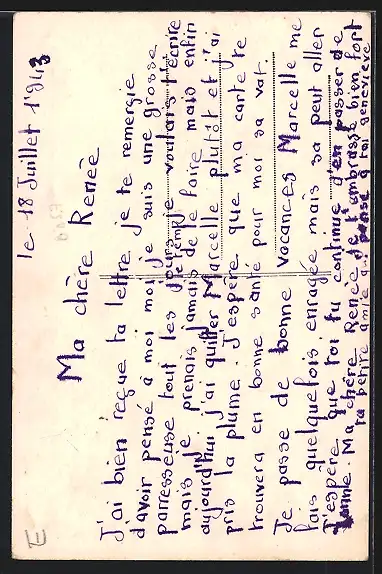 le 18 Juillet 1943
Ma chère Renée
J'ai bien reçue ta lettre je te remergie
d'avoir pensé a moi moi je suis une grosse
parresseuse tout les jours je voulais t'écrire
mais je prenais jamais le temp de le faire mais enfin
aujourd'hui j'ai quitter Marcelle plutôt et j'ai
pris la plume. J'espère que ma carte te
trouvera en bonne santé pour moi sa vat.
Je passe de bonne vacances Marcelle me
fais quelquefois enragée mais sa peut aller
J'espère que toi tu continue d'en passer de
bonne. Ma chère Renée je t'embrasse bien fort
ta petite amie qui pense a toi Geneviève
E